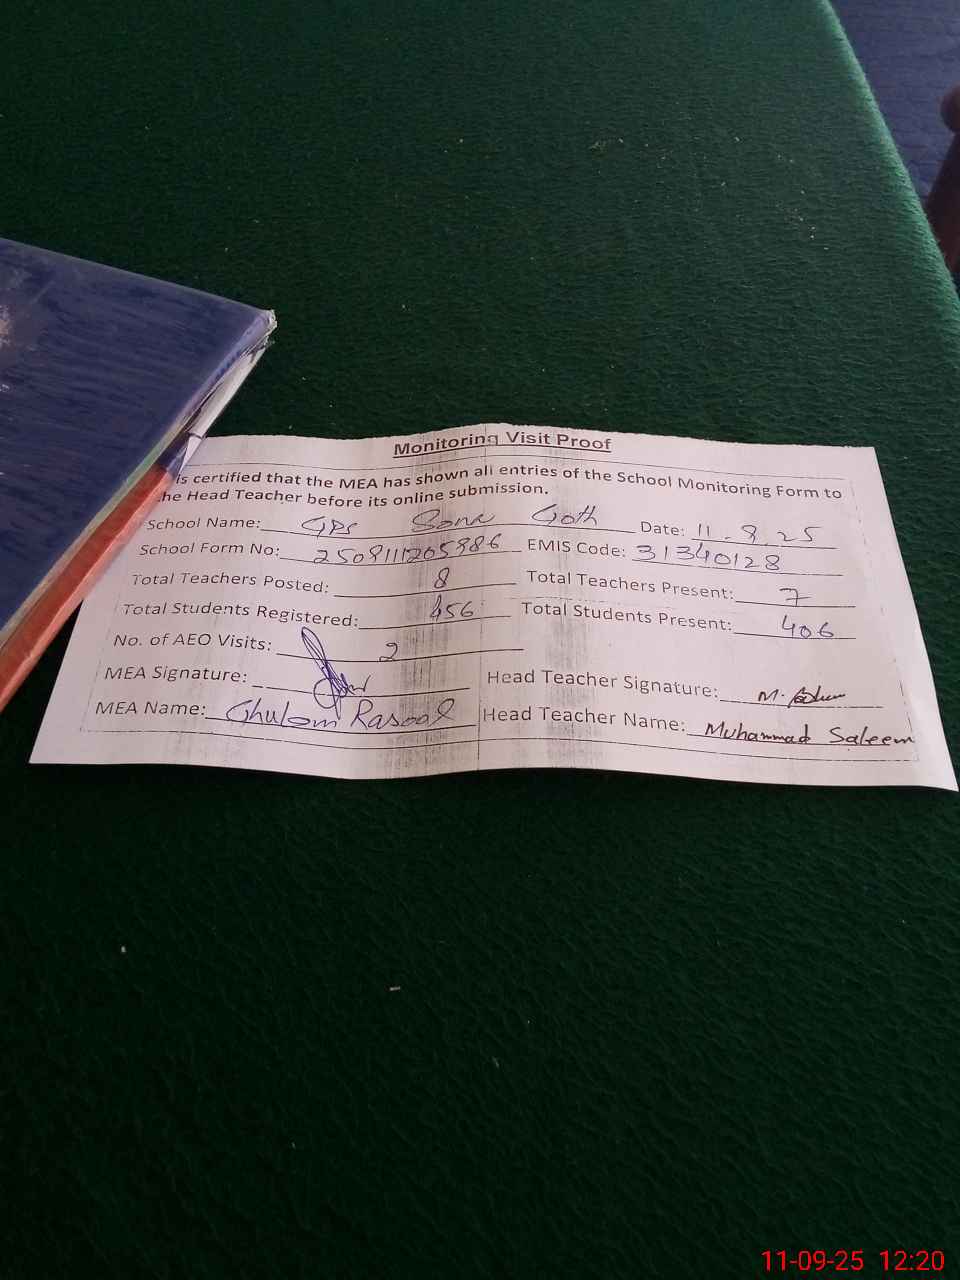 Monitoring Visit Proof
is certified that the MEA has shown all entries of the School Monitoring Form to
he Head Teacher before its online submission.
School Name: GPS Sona Goth Date: 11.9.25
School Form No: EMIS Code: 31340128
Total Teachers Posted: 8 Total Teachers Present: 7
Total Students Registered: 456 Total Students Present: 406
No. of AEO Visits: 2
MEA Signature: Head Teacher Signature:
MEA Name: Ghulam Rasool Head Teacher Name: Muhammad Saleem
11-09-25 12:20